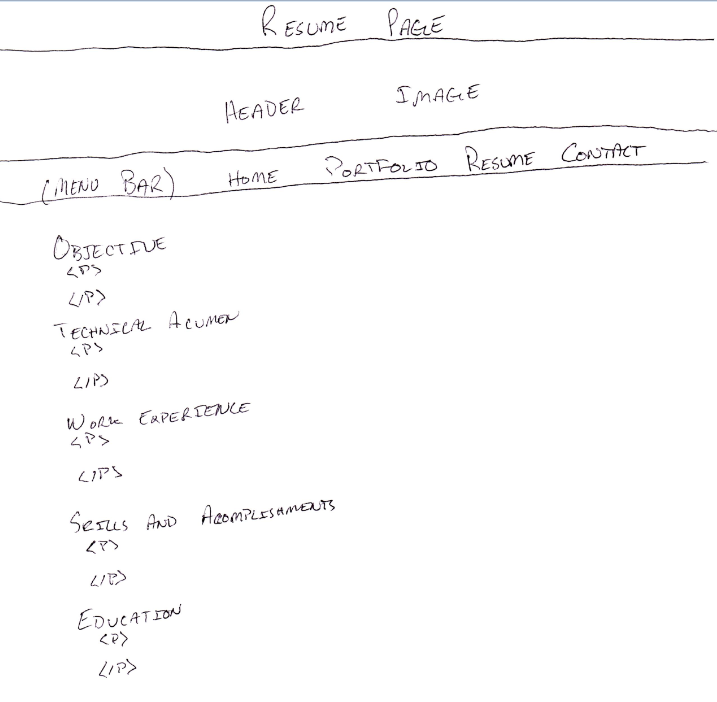 RESUME PAGE
HEADER IMAGE
(MENU BAR) HOME PORTFOLIO RESUME CONTACT
OBJECTIVE
<P>
</P>
TECHNICAL ACUMEN
<P>
</P>
WORK EXPERIENCE
<P>
</P>
SKILLS AND ACOMPLISHMENTS
<P>
</P>
EDUCATION
<P>
</P>